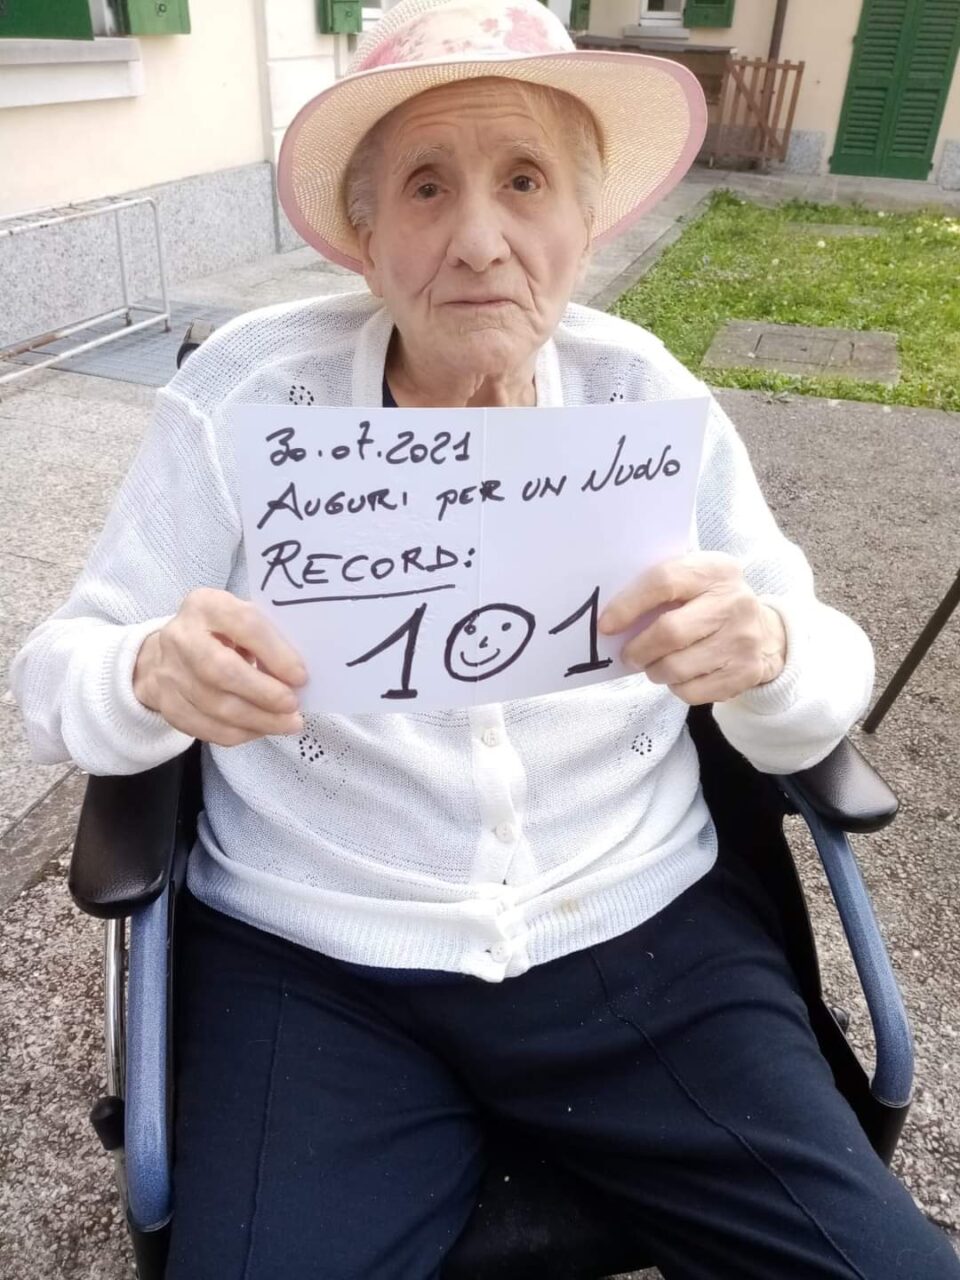 30.07.2021
AUGURI PER UN NUOVO
RECORD:
101